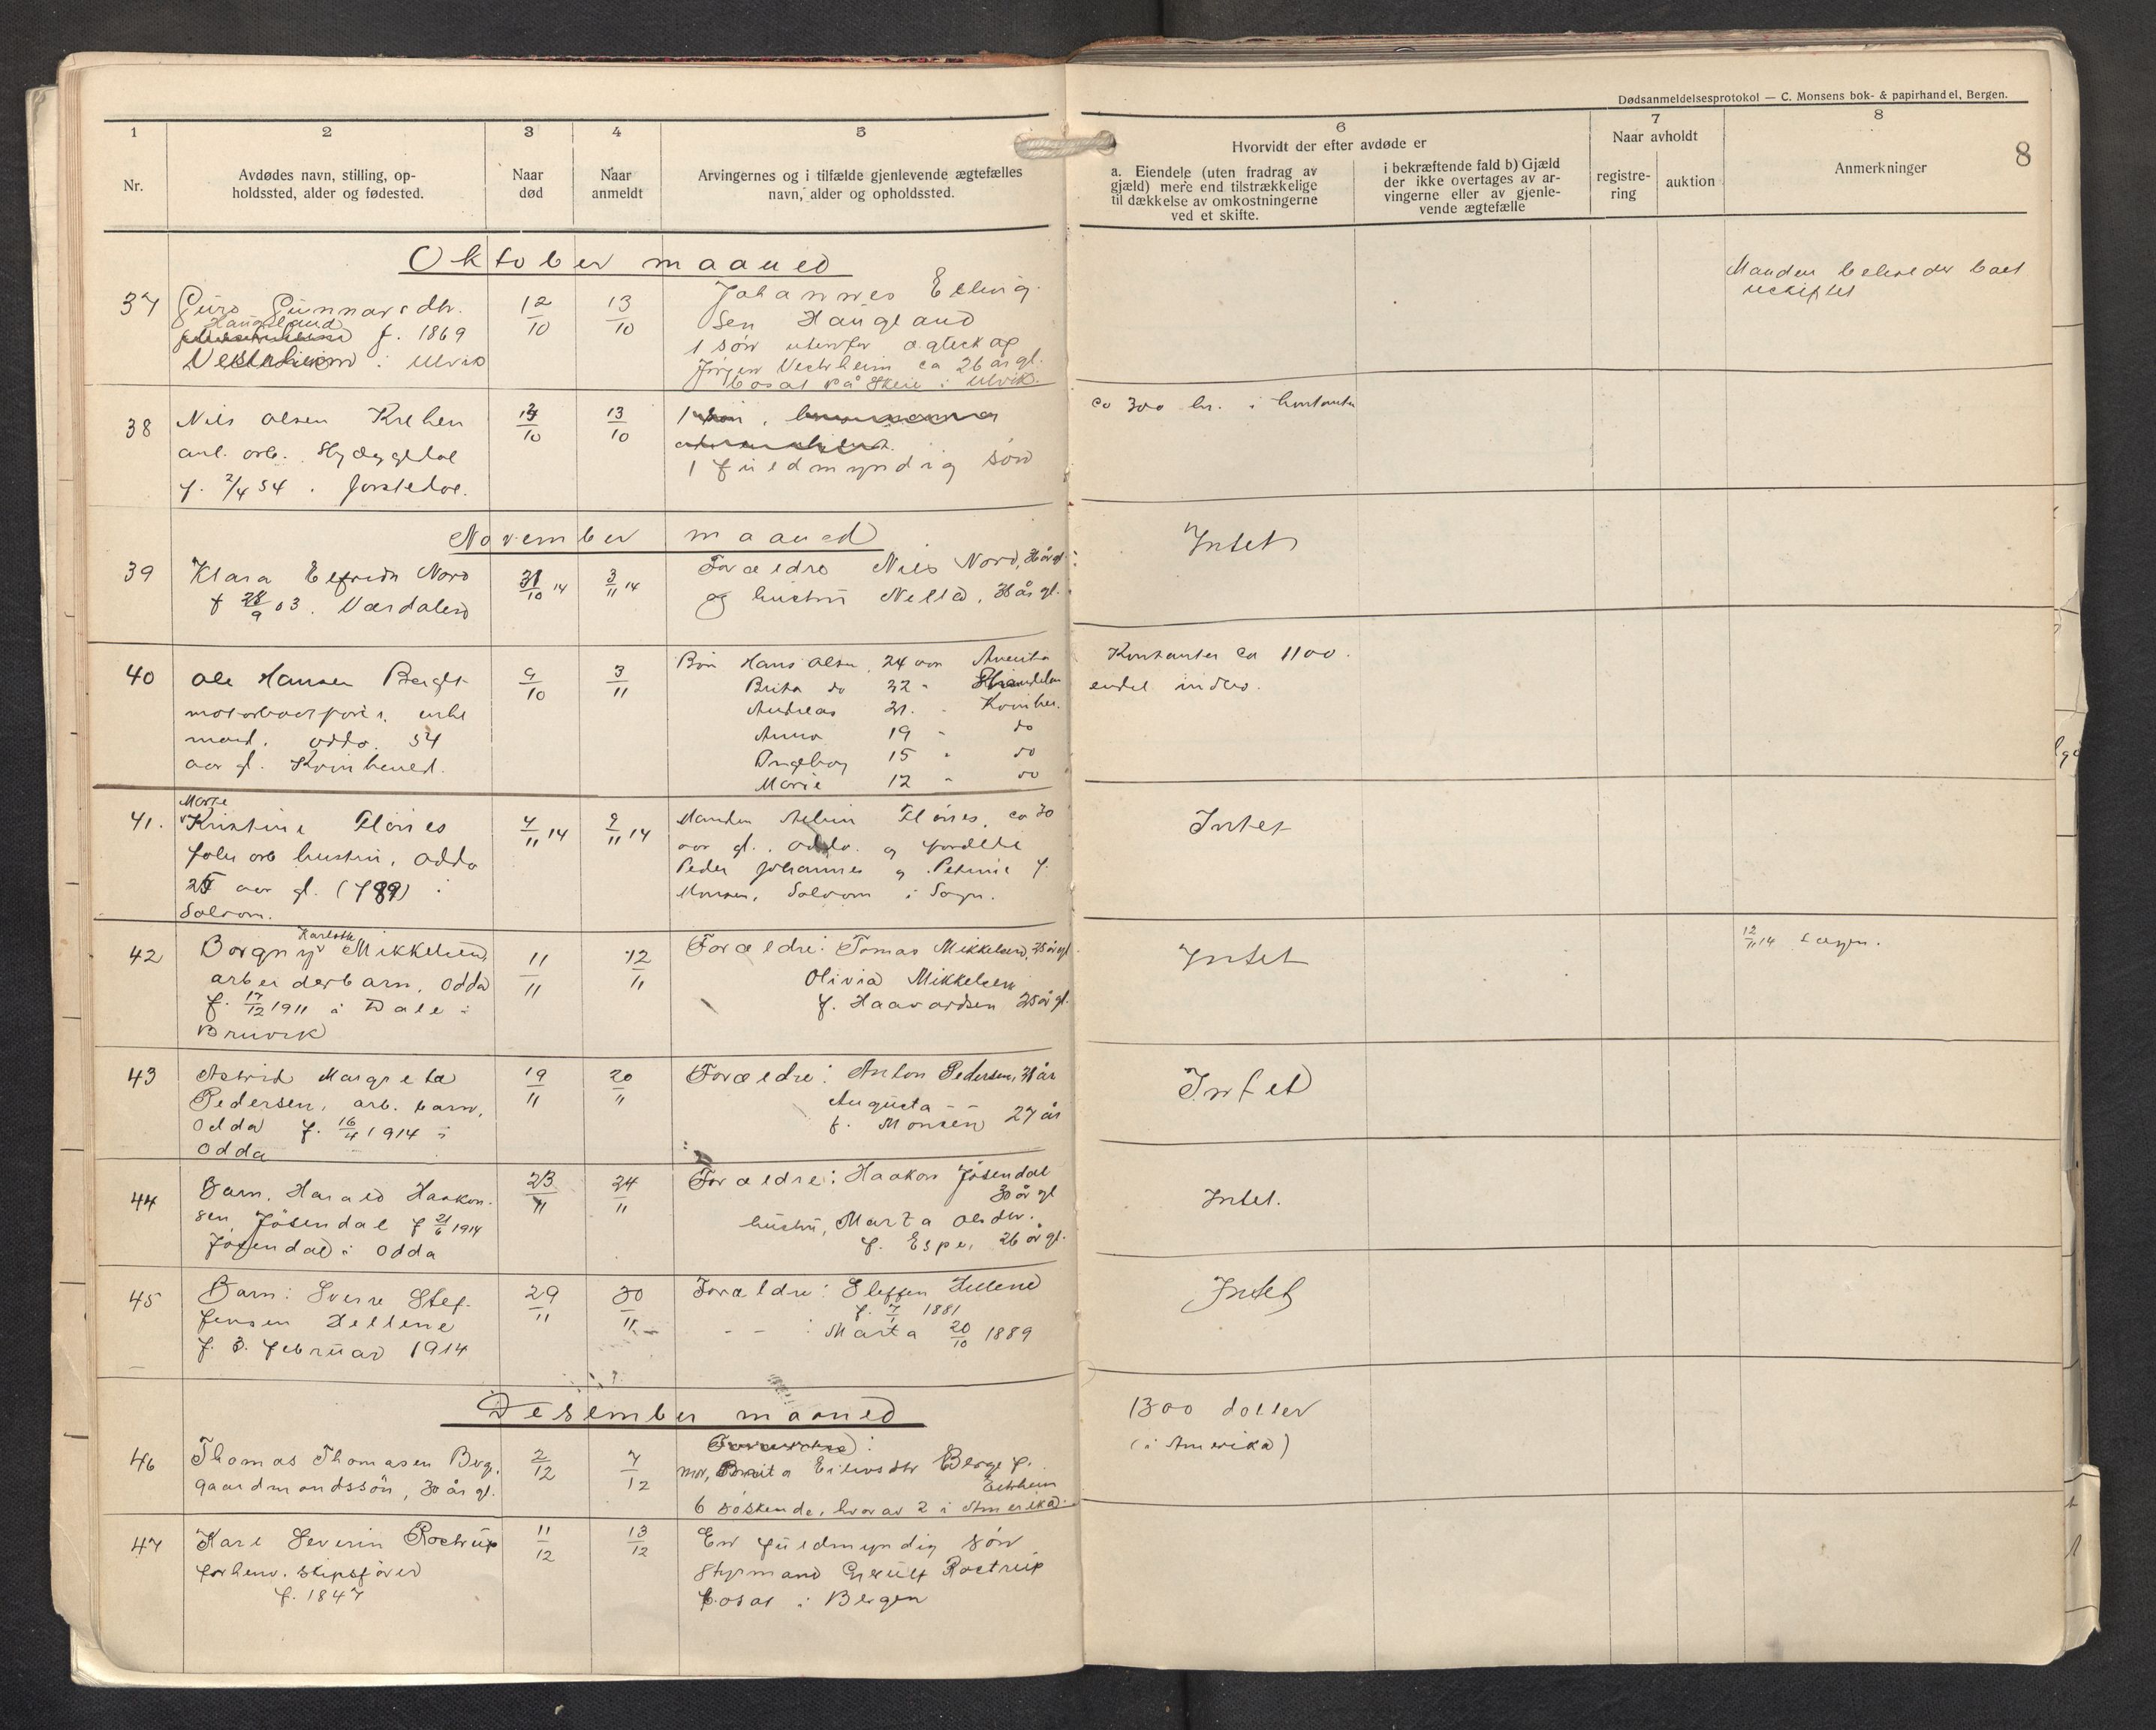 Dødsanmeldelsesprotokol — C. Monsens bok- & papirhandel, Bergen.
8
1
Nr.
2
Avdødes navn, stilling, op-
holdssted, alder og fødested.
3
Naar
død
4
Naar
anmeldt
5
Arvingernes og i tilfælde gjenlevende ægtefælles
navn, alder og opholdssted.
6
Hvorvidt der efter avdøde er
a. Eiendele (uten fradrag av
gjæld) mere end tilstrækkelige
til dækkelse av omkostningerne
ved et skifte.
i bekræftende fald b) Gjæld
der ikke overtages av ar-
vingerne eller av gjenle-
vende ægtefælle
7
Naar avholdt
registre-
ring
auktion
8
Anmerkninger
Oktober maaned
37
Guro Gunnarsdtr.
Haugland
f. 1869
i Ulvik
12/10
13/10
Johannes Elling-
sen Haugland
1 sön utenfor ægteskap
Jörgen Vestrheim ca 26 år gl.
bosat på Skeie i Ulvik.
Manden beholder boet
uskiftet
38
Nils Olsen Kreken
anl. arb.
f. 2/4 54 i Jostedal.
10
13/10
1 fuldmyndig sön
ca 300 kr. i kontanter
November maaned
39
Klara Elfrida Nord
f 28/9 03. Værdalen
31/10 14
3/11 14
Forældre Nils Nord, 36 år gl.
og hustru Nella, 38 år gl.
Intet
40
Ole Hansen
enke
mand, Odda. 54
aar gl. Kvinhered.
9/10
3/11
Bön Hans Olsen 24 aar Amerika
Brita do 22 "
Andreas 21 " Kvinher.
Anna 19 " do
Ingeborg 15 " do
Marie 12 " do
Kontanter ca 1100.
endel indbo.
41.
Marie
Kristine Flönes
hustru, Odda
25 aar gl. (1889) i
Solvorn.
7/11 14
9/11 14
Manden Flönes, ca 30
aar gl., Odda. og forældre
Peder Johannes og Petrine f.
Monsen, Solvorn i Sogn.
Intet
42
Karlotte
Borgny Mikkelsen,
arbeiderbarn, Odda
f. 17/12 1911 i Dale i
Bruvik
11/11
12/11
Forældre: Tomas Mikkelsen, 28 år gl.
Olivia Mikkelsen
f. Haavardsen 25 år gl.
Intet
12/11 14
43
Astrid Margreta
Pedersen, arb. barn,
Odda f. 16/4 1914 i
Odda
19/11
20/11
Forældre: Anton Pedersen, 31 år
Augusta - -
f. Monsen 27 år
Intet
44
Barn. Harald Haakon-
sen Jösendal f 21/6 1914
Jösendal i Odda
23/11
24/11
Forældre: Haakon Jösendal
30 år gl
hustru, Marta Olsdtr.
f. Espe, 26 år gl.
Intet.
45
Barn: Sverre Stef-
fensen Hellene
f. 3. februar 1914
29/11
30/11
Forældre: Steffen Hellene
f. 7/1 1881
- - : Marta 20/10 1889
Intet
Desember maaned
46
Thomas Thomasen Berge,
gaardmandssön, 30 år gl.
2/12
7/12
mor, Brita Eilevsdtr Berge f.
Eitrheim
6 söskende, hvorav 2 i Amerika.
1300 doller
(i Amerika)
47
Karl Severin Rostrup
forhenv. skipsförer
f. 1847
11/12
13/12
En fuldmyndig sön
Styrmand Rostrup
bosat i Bergen